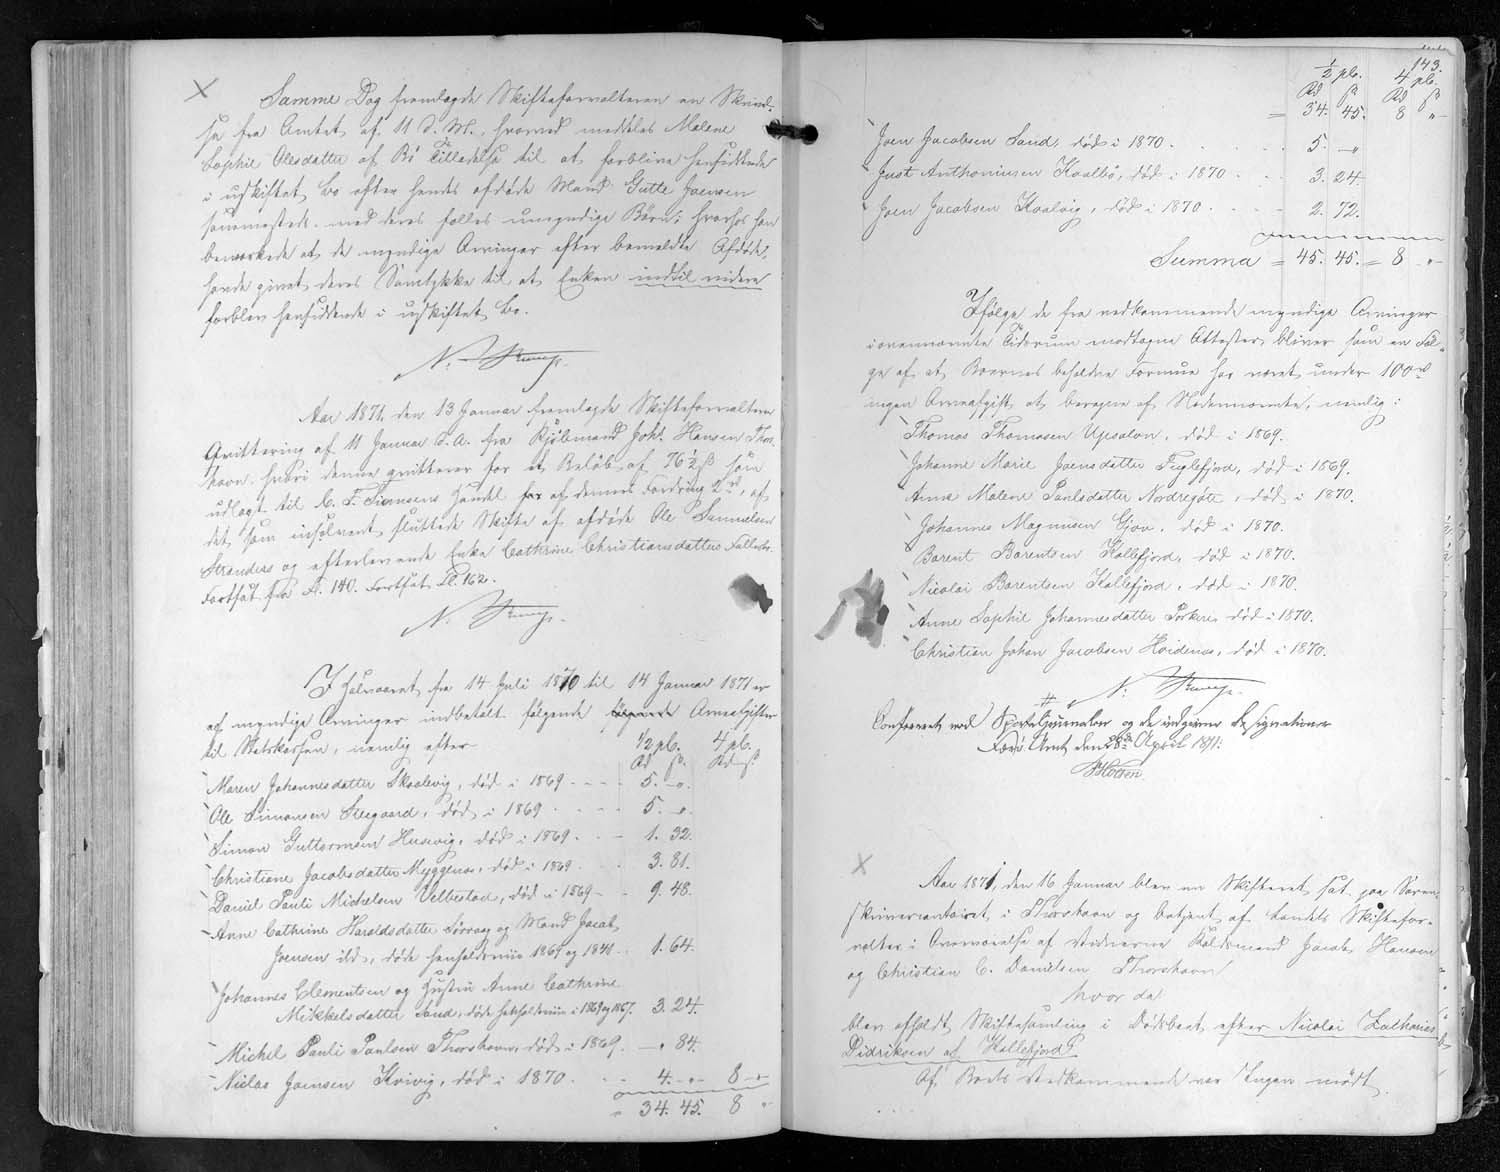 Samme Dag fremlagde Skifteforvalteren en Skrivel-
se fra Amtet af 11 d. M., hvorved meddeles Malene
Sophie Olesdatter af Bø Tilladelse til at forblive hensiddende
i uskiftet Bo efter hendes afdøde Mand Gutte Joensen
sammesteds med deres fælles umyndige Børn; hvorhos han
bemærkede at de myndige Arvinger efter bemeldte Afdøde,
havde givet deres Samtykke til at Enken indtil videre
forblev hensiddende i uskiftet Bo.
N.
Aar 1871, den 13 Januar fremlagde Skifteforvalteren
Qvittering af 11 Januar d. A. fra Kjøbmand Joh. Hansen Thors-
havn, hvori denne qvitterer for et Beløb af 76½ ß som
udlagt til C. F. Siemsens Handel for af dennes Fordring 2 rd, af
det som insolvent sluttede Skifte af afdøde Ole Samuelsen
Strenders og efterlevende Enke Cathrine Christiansdatters Fallesbo.
Fortsat fra F. 140. Fortsat Fl. 162.
N.
I Halvaaret fra 14 Juli 1870 til 14 Januar 1871 er
af myndige Arvinger indbetalt følgende følgende Arveafgifter
til Statskassen, nemlig efter
½ pCt. 4 pCt.
Rd ß. Rd ß.
Maren Johannesdatter Skaalevig, død i 1869 - - - 5. - „.
Ole Simonsen Steegaard, død i 1869 - - - 5. - „.
Simon Guttormsen Husevig, død i 1869 - - - 1. 32.
Christiane Jacobsdatter Myggenæs, død i 1869 - - 3. 81.
Daniel Pauli Michelsen Velbestad, død i 1869 - - 9. 48.
Anne Cathrine Haraldsdatter Sørvaag og Mand Jacob
Joensen ibd., døde henholdsviis 1869 og 1840 - - 1. 64.
Johannes Clementsen og Hustru Anne Cathrine
Mikkelsdatter Sand, døde henholdsviis i 1869 og 1867. 3. 24.
Michel Pauli Paulsen Thorshavn, død i 1869. - „ 84.
Niclas Joensen Kvivig, død i 1870 - - - 4. - „ - 8 - „
„ 34. 45. 8 „
143.
½ pCt. 4 pCt.
Rd ß Rd ß
= 34. 45. 8 „ -
Joen Jacobsen Sand, død i 1870 - - - 5. - „
Just Anthoniussen Kaalbø, død i 1870 - - - 3. 24.
Joen Jacobsen Kvalvig, død i 1870 - - - 2. 72.
Summa = 45. 45. = 8 - „ -
Ifølge de fra vedkommende myndige Arvinger
i ovennævnte Tidsrum modtagne Attester bliver som en Føl-
ge af at Boernes beholdne Formue har været under 100 rd
ingen Arveafgift at beregne af Nedennævnte, nemlig:
Thomas Thomasen Upsalen, død i 1869.
Johanne Marie Joensdatter Fuglefjord, død i 1869.
Anne Malene Paulsdatter Nordregøte, død i 1870.
Johannes Magnusen Gjov, død i 1870.
Barent Barentsen Kollefjord, død i 1870.
Nicolai Barentsen Kollefjord, død i 1870.
Anne Sophie Johannesdatter Porkere, død i 1870.
Christian Johan Jacobsen Hvidenæs, død i 1870.
N.
Confereret med Sporteljournalen og de indgivne Designationer
Færø Amt den 28de April 1871.
Aar 1871, den 16 Januar blev en Skifteret sat paa Soren-
skriverContoiret i Thorshavn og betjent af Landets Skiftefor-
valter i Overværelse af Vidnerne Koldsmand Jacob Hansen
og Christian C. Danielsen Thorshavn
hvor da
blev afholdt Skiftesamling i Dødsboet efter Nicolai Zacharias
Didriksen af Kollefjord.
Af Boets Vedkommende var Ingen mødt.